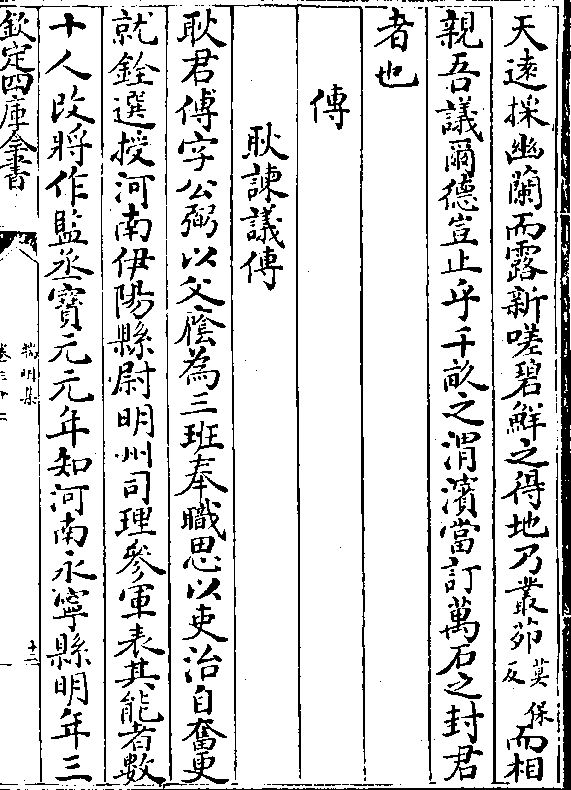 天遠採幽蘭而露新嗟碧鮮之得地乃叢茆莫保反而相
親吾議爾德豈止乎千畝之渭濱當訂萬石之封君
者也
傳
耿諫議傳
耿君傅字公弼以父廕為三班奉職思以吏治自奮更
就銓選授河南伊陽縣尉明州司理參軍表其能者數
十人改將作監丞寶元元年知河南永寧縣明年三
欽定四庫全書
端明集
卷三十二
十二